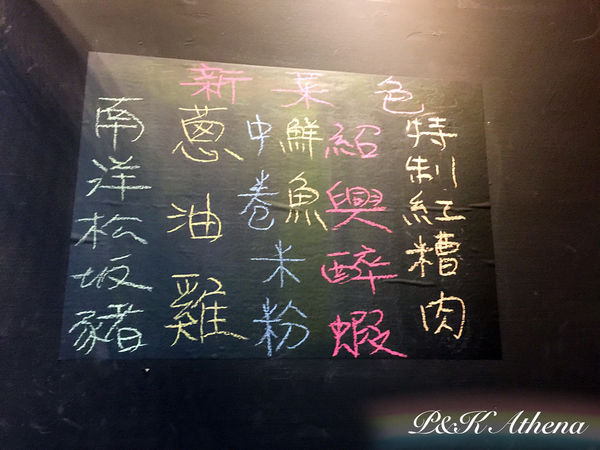 新菜色
特制紅糟肉
紹興醉蝦
鮮魚
中卷米粉
蔥油雞
南洋松坂豬
P&K Athena